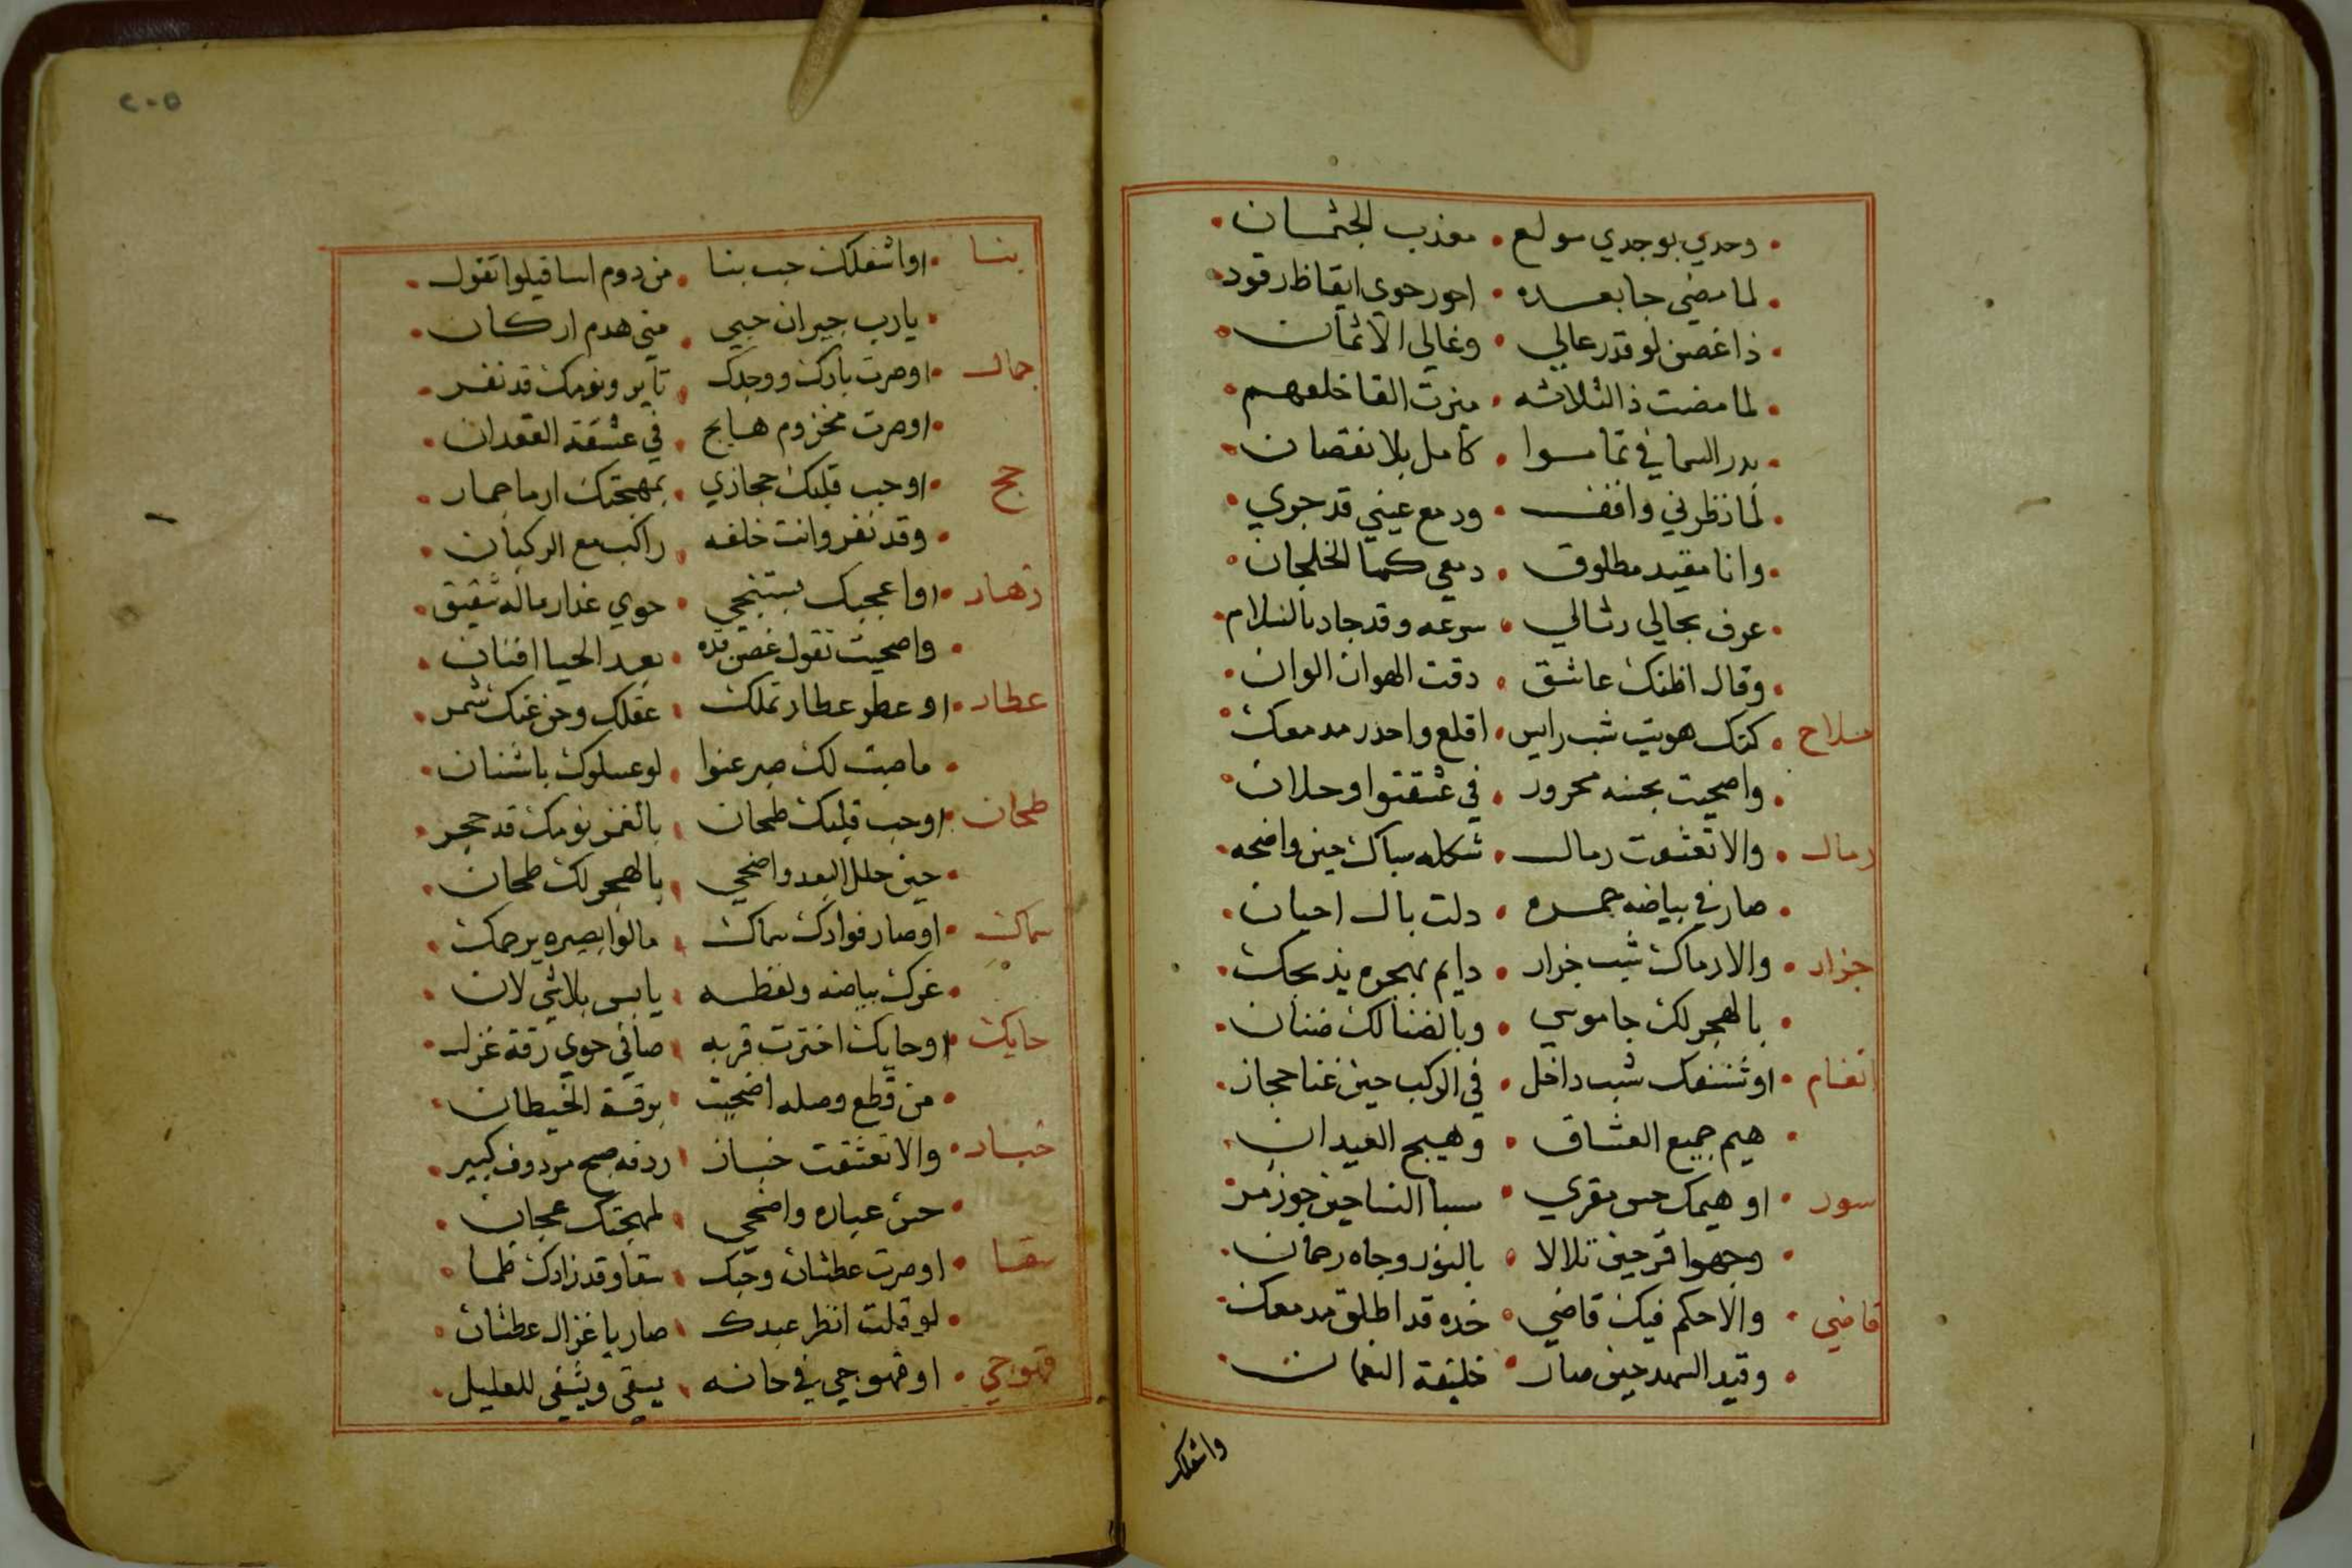 وحدي بوجدي مولع • معذب الجثمان •
لما مضي جا بعده • احور حوي ايقاظ رقود
ذا غصن لو قدر عالي • وغالي الاثمان •
لما مضت ذا الثلاثه • ميزت القا خلفهم •
بدر السما في تماموا • كامل بلا نقصان •
لما نظرني واقف • ودمع عيني قد جري •
وانا مقيد مطلوق • دمعي كما الخلجان •
عرف بحالي رثالي • سرعه وقد جاد بالسلام •
وقال اظنك عاشق • دقت الهوان الوان •
ملاح • كنك هويت شب رايس • اقلع واحدر مدمعك •
واصحيت بحسنه محرور • في عشقتوا وحلان •
رمال • والا تعشقت رمال • شكله سباك حين واضحه •
صار في بياضه جمره • دلت بال احيان •
جزار • والا رماك شب جزار • دايم بهجره يذبحك •
بالهجر لك جاموسي • وبالضنا لك ضنان •
انغام • او شنفك شب داخل • في الركب حين غنا حجاز •
هيم جميع العشاق • وهيج العيدان •
سور • او هيمك حس مقري • سبا النسا حين جوز مر •
وجهوا قمر حين تلالا • بالنور وجاه رحمان •
قاضي • والاحكم فيك قاضي • خده قد اطلق مدمعك •
وقيد السهد حين صار • خليفة النعمان
واشغلك
٢٠٥
بنا • اواشغلك حب بنا • من دوم اساقيلوا تقول •
يارب جيران حبي • مني هدم اركان •
جمال • اوصرت بارك ووجدك • تاير ونومك قد نفر •
اوصرت مخزوم هايج • في عشقة القعدان •
حج • اوحب قلبك حجازي • بمهجتك ارما جمار •
وقد نفر وانت خلفه • راكب مع الركبان •
زهار • اواعجبك بستنجي • حوي عذار ماله شقيق •
واصحيت تقول غصن قده • بعد الحيا افنان •
عطار • او عطر عطار تملك • عقلك وحن عنك شمر •
ماصبت لك صبر عنوا • لوعسلوك باشنان •
طحان • اوحب قلبك طحان • بالغمز نومك قد حجر •
حين حلل البعد واضحي • بالهجر لك طحان •
سماك • اوصار فوادك سماك • مالوا بصيره يرحمك •
غرك بياضه ولفظه • يابس بلاشي لان •
حايك • اوحايك اخترت قربه • صافي حوي رقة غزل •
من قطع وصله اضحيت • برقة الخيطان •
خباز • والا تعشقت خباز • ردفه صبح مردوف كبير •
حسن عياره واضحي • لمهجتك عجان •
سقا • اوصرت عطشان وحبك • سقا وقد زادك ظما •
لو قلت انظر عبدك • صار يا غزال عطشان •
قهوجي • اوقهوجي في حانه • يسقي ويشفي للعليل •